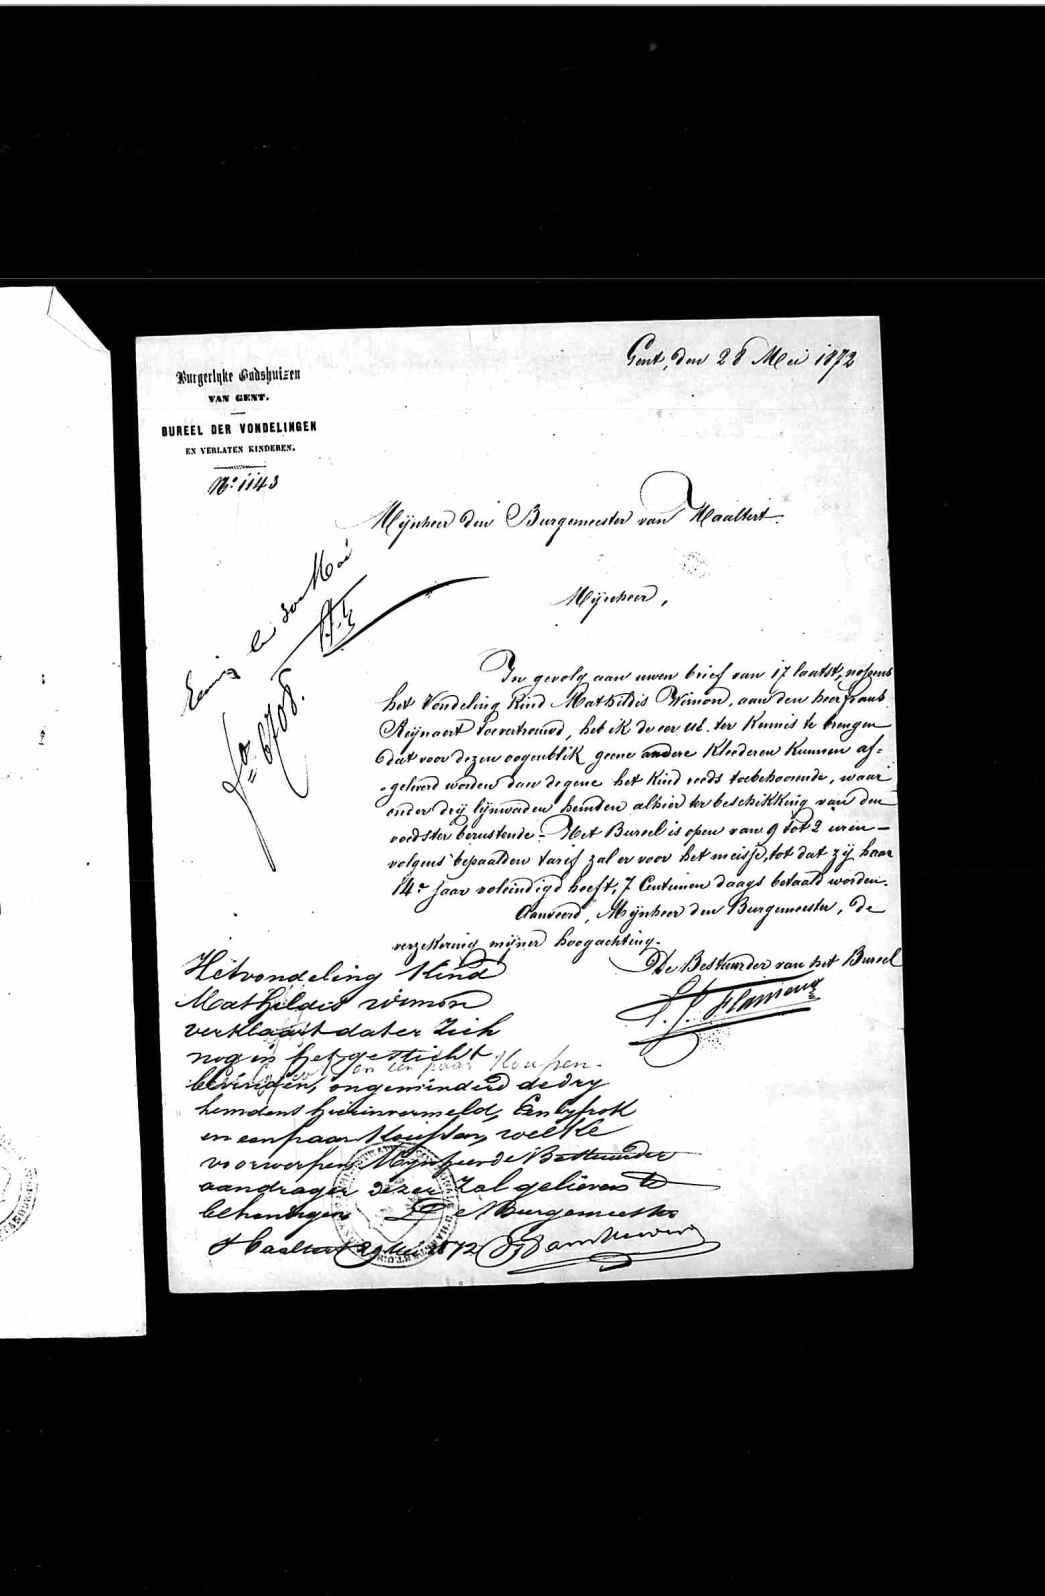 Gent, den 28 Mei 1872
Burgerlyke Godshuizen
VAN GENT.
BUREEL DER VONDELINGEN
EN VERLATEN KINDEREN.
No. 1143
Mijnheer den Burgemeester van Haaltert.
Mijnheer,
le 30 Mai
fo 6708.
In gevolg aan uwen brief van 17 laatst, nopens
het Vondeling Kind Mathildis Wimon, aan den heer Frans
Reijnaert toevertrouwd, heb ik de eer ul. ter Kennis te brengen
dat voor dezen oogenblik geene andere Kleederen Kunnen af-
-geleverd worden dan degene het Kind reeds toebehoorende, waar
onder drij lijnwaden hemden alhier ter beschikking van den
voedster berustende - Het Bureel is open van 9 tot 2 uren -
volgens bepaalden tarif zal er voor het meisje, tot dat zij haar
14e Jaar voleindigd heeft, 7 Centimen daags betaald worden.
Aanveerd, Mijnheer den Burgemeester, de
verzekering mijner hoogachting.
De Bestuurder van het Bureel
Het vondeling Kind
Mathildis Wimon
verklaart dat er Zich
nog in het gesticht
en een paar
bevinden, ongeminderd de dry
hemdens hierinvermeld, Een
en een paar welke
voorwerpen Mynheer de Bestuurder
aandrager dezer Zal gelieven te
behandigen De Burgemeester
Haaltert 29 Mei 1872